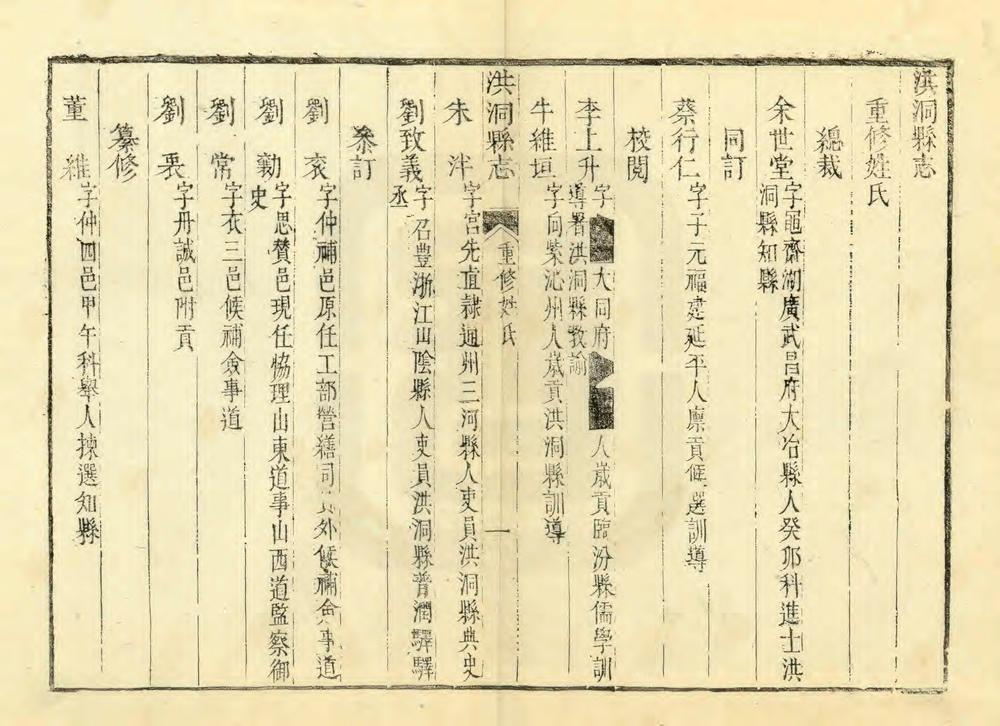 洪洞縣志
重修姓氏
總裁
余世堂 字黽齋湖廣武昌府大冶縣人癸卯科進士洪
洞縣知縣
同訂
蔡行仁 字子元福建延平人廩貢候選訓導
校閱
李上升 字 大同府 人歲貢臨汾縣儒學訓
導署洪洞縣教諭
牛維垣 字向紫沁州人歲貢洪洞縣訓導
洪洞縣志 重修姓氏 一
朱泮 字宮先直隸通州三河縣人吏員洪洞縣典史
劉致義 字召豊浙江山陰縣人吏員洪洞縣普潤驛驛
丞
叅訂
劉衮 字仲補邑原任工部營繕司員外候補僉事道
劉勷 字思贊邑現任協理山東道事山西道監察御
史
劉常 字衣三邑候補僉事道
劉 字丹誠邑附貢
纂修
董維 字仲四邑甲午科舉人揀選知縣